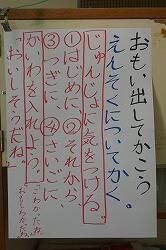 おもい出してかこう
えんそくについてかく。
じゅんじょに気をつける。
①はじめに、②それから、
③つぎに、④さいごに、
かいわを入れよう。
「おいしそうだね。」
「こわかったね。」
「おもしろかったね。」